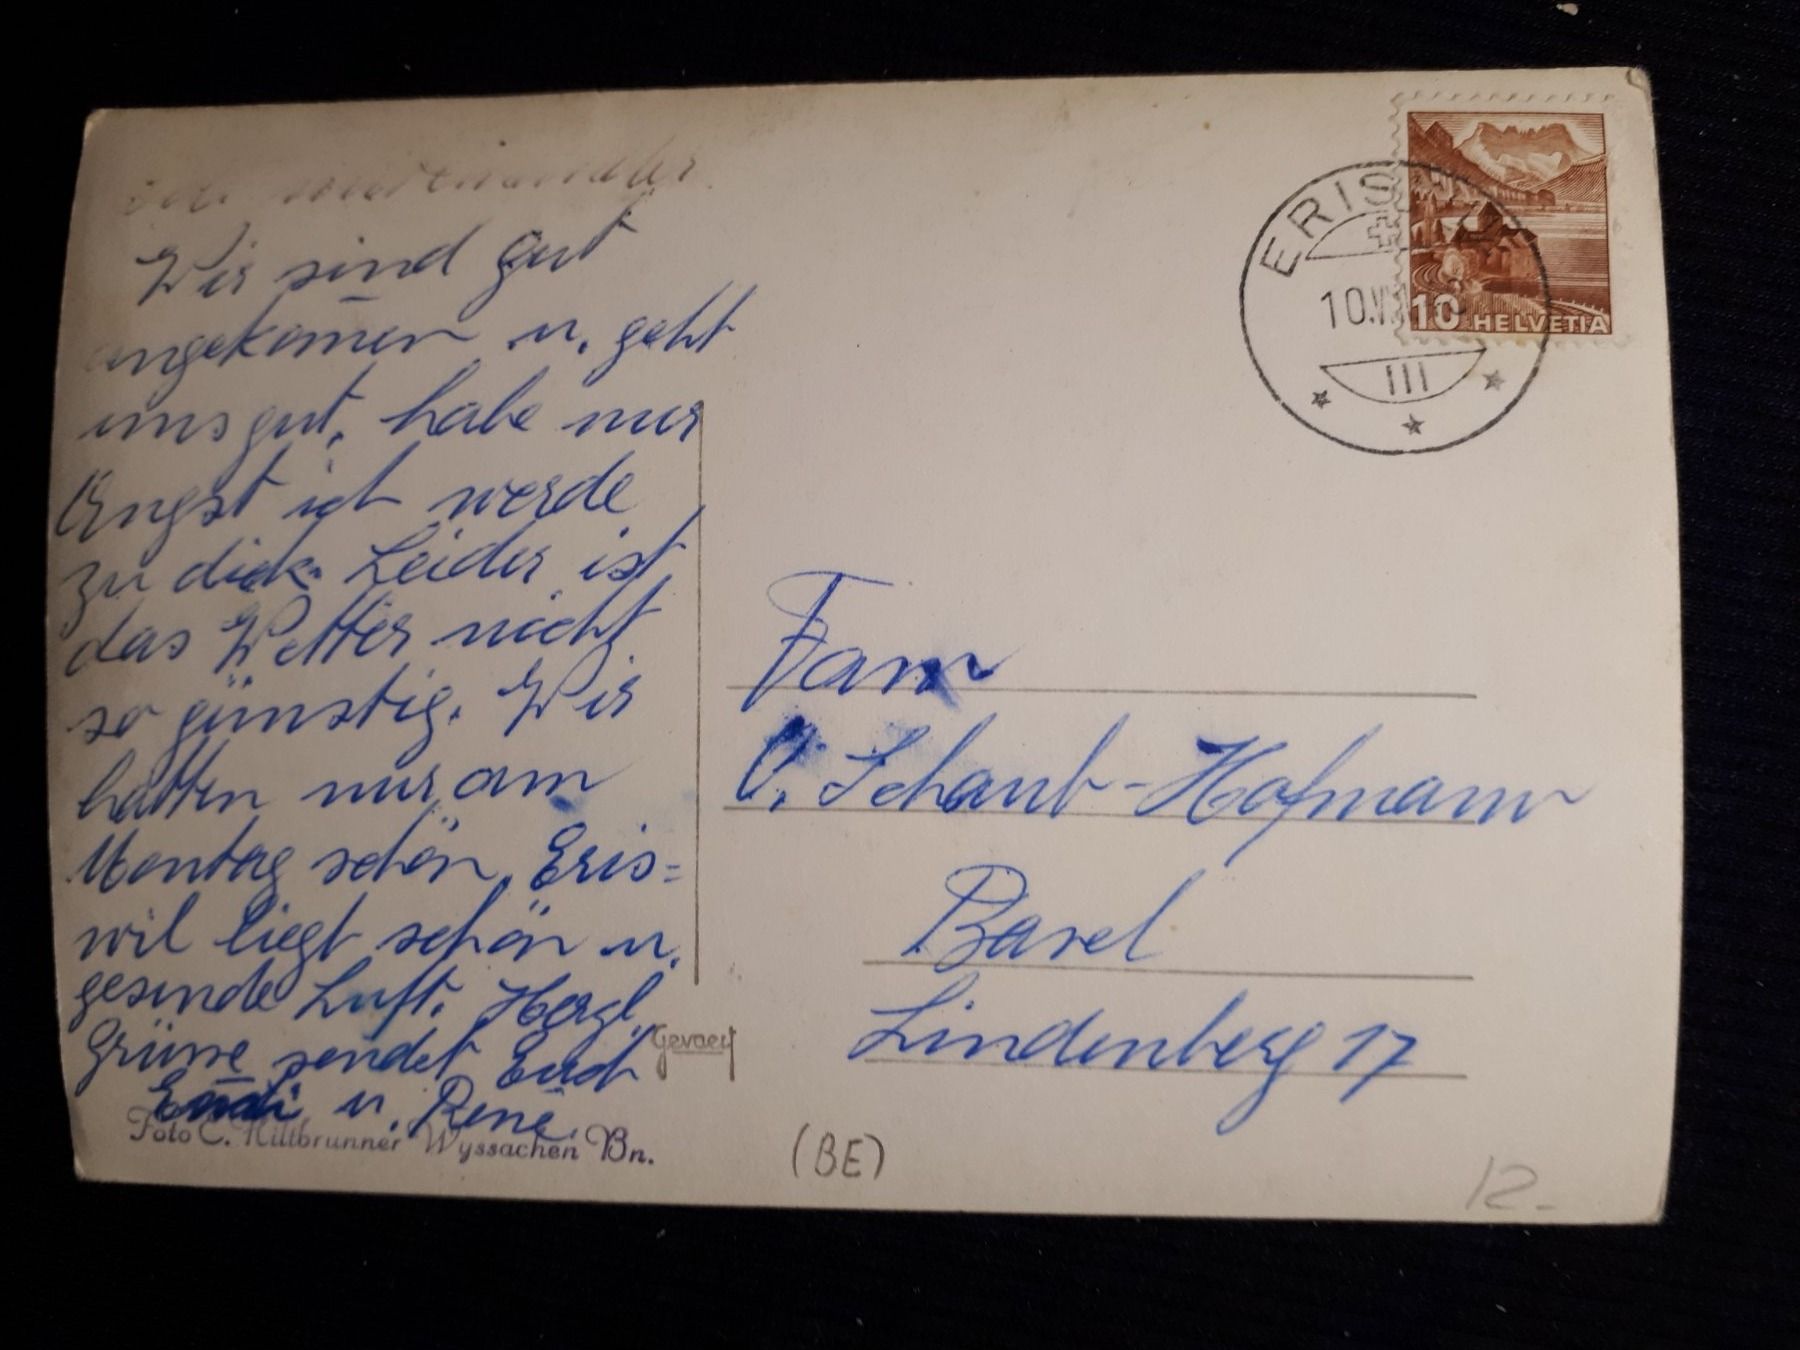 Wir sind gut
angekomen u. geht
uns gut, habe nur
Angst ich werde
zu dick. Leider ist
das Wetter nicht
so günstig. Wir
hatten nur am
Montag schön, Eris=
wil liegt schön u.
gesunde Luft. Herzl.
Grüsse sendet Euch
u. René.
Foto C. Hiltbrunner Wyssachen Bn.
Gevaert
ERIS
10.
III
10 HELVETIA
Fam
O. Schaub-Hofmann
Basel
Lindenberg 17
(BE)
12.-